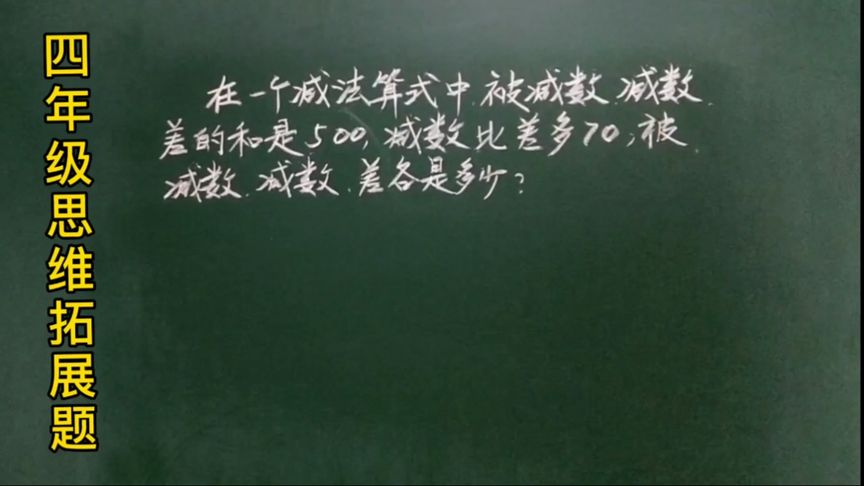 四年级思维拓展题
在一个减法算式中、被减数、减数、
差的和是500,减数比差多70,被
减数、减数、差各是多少?